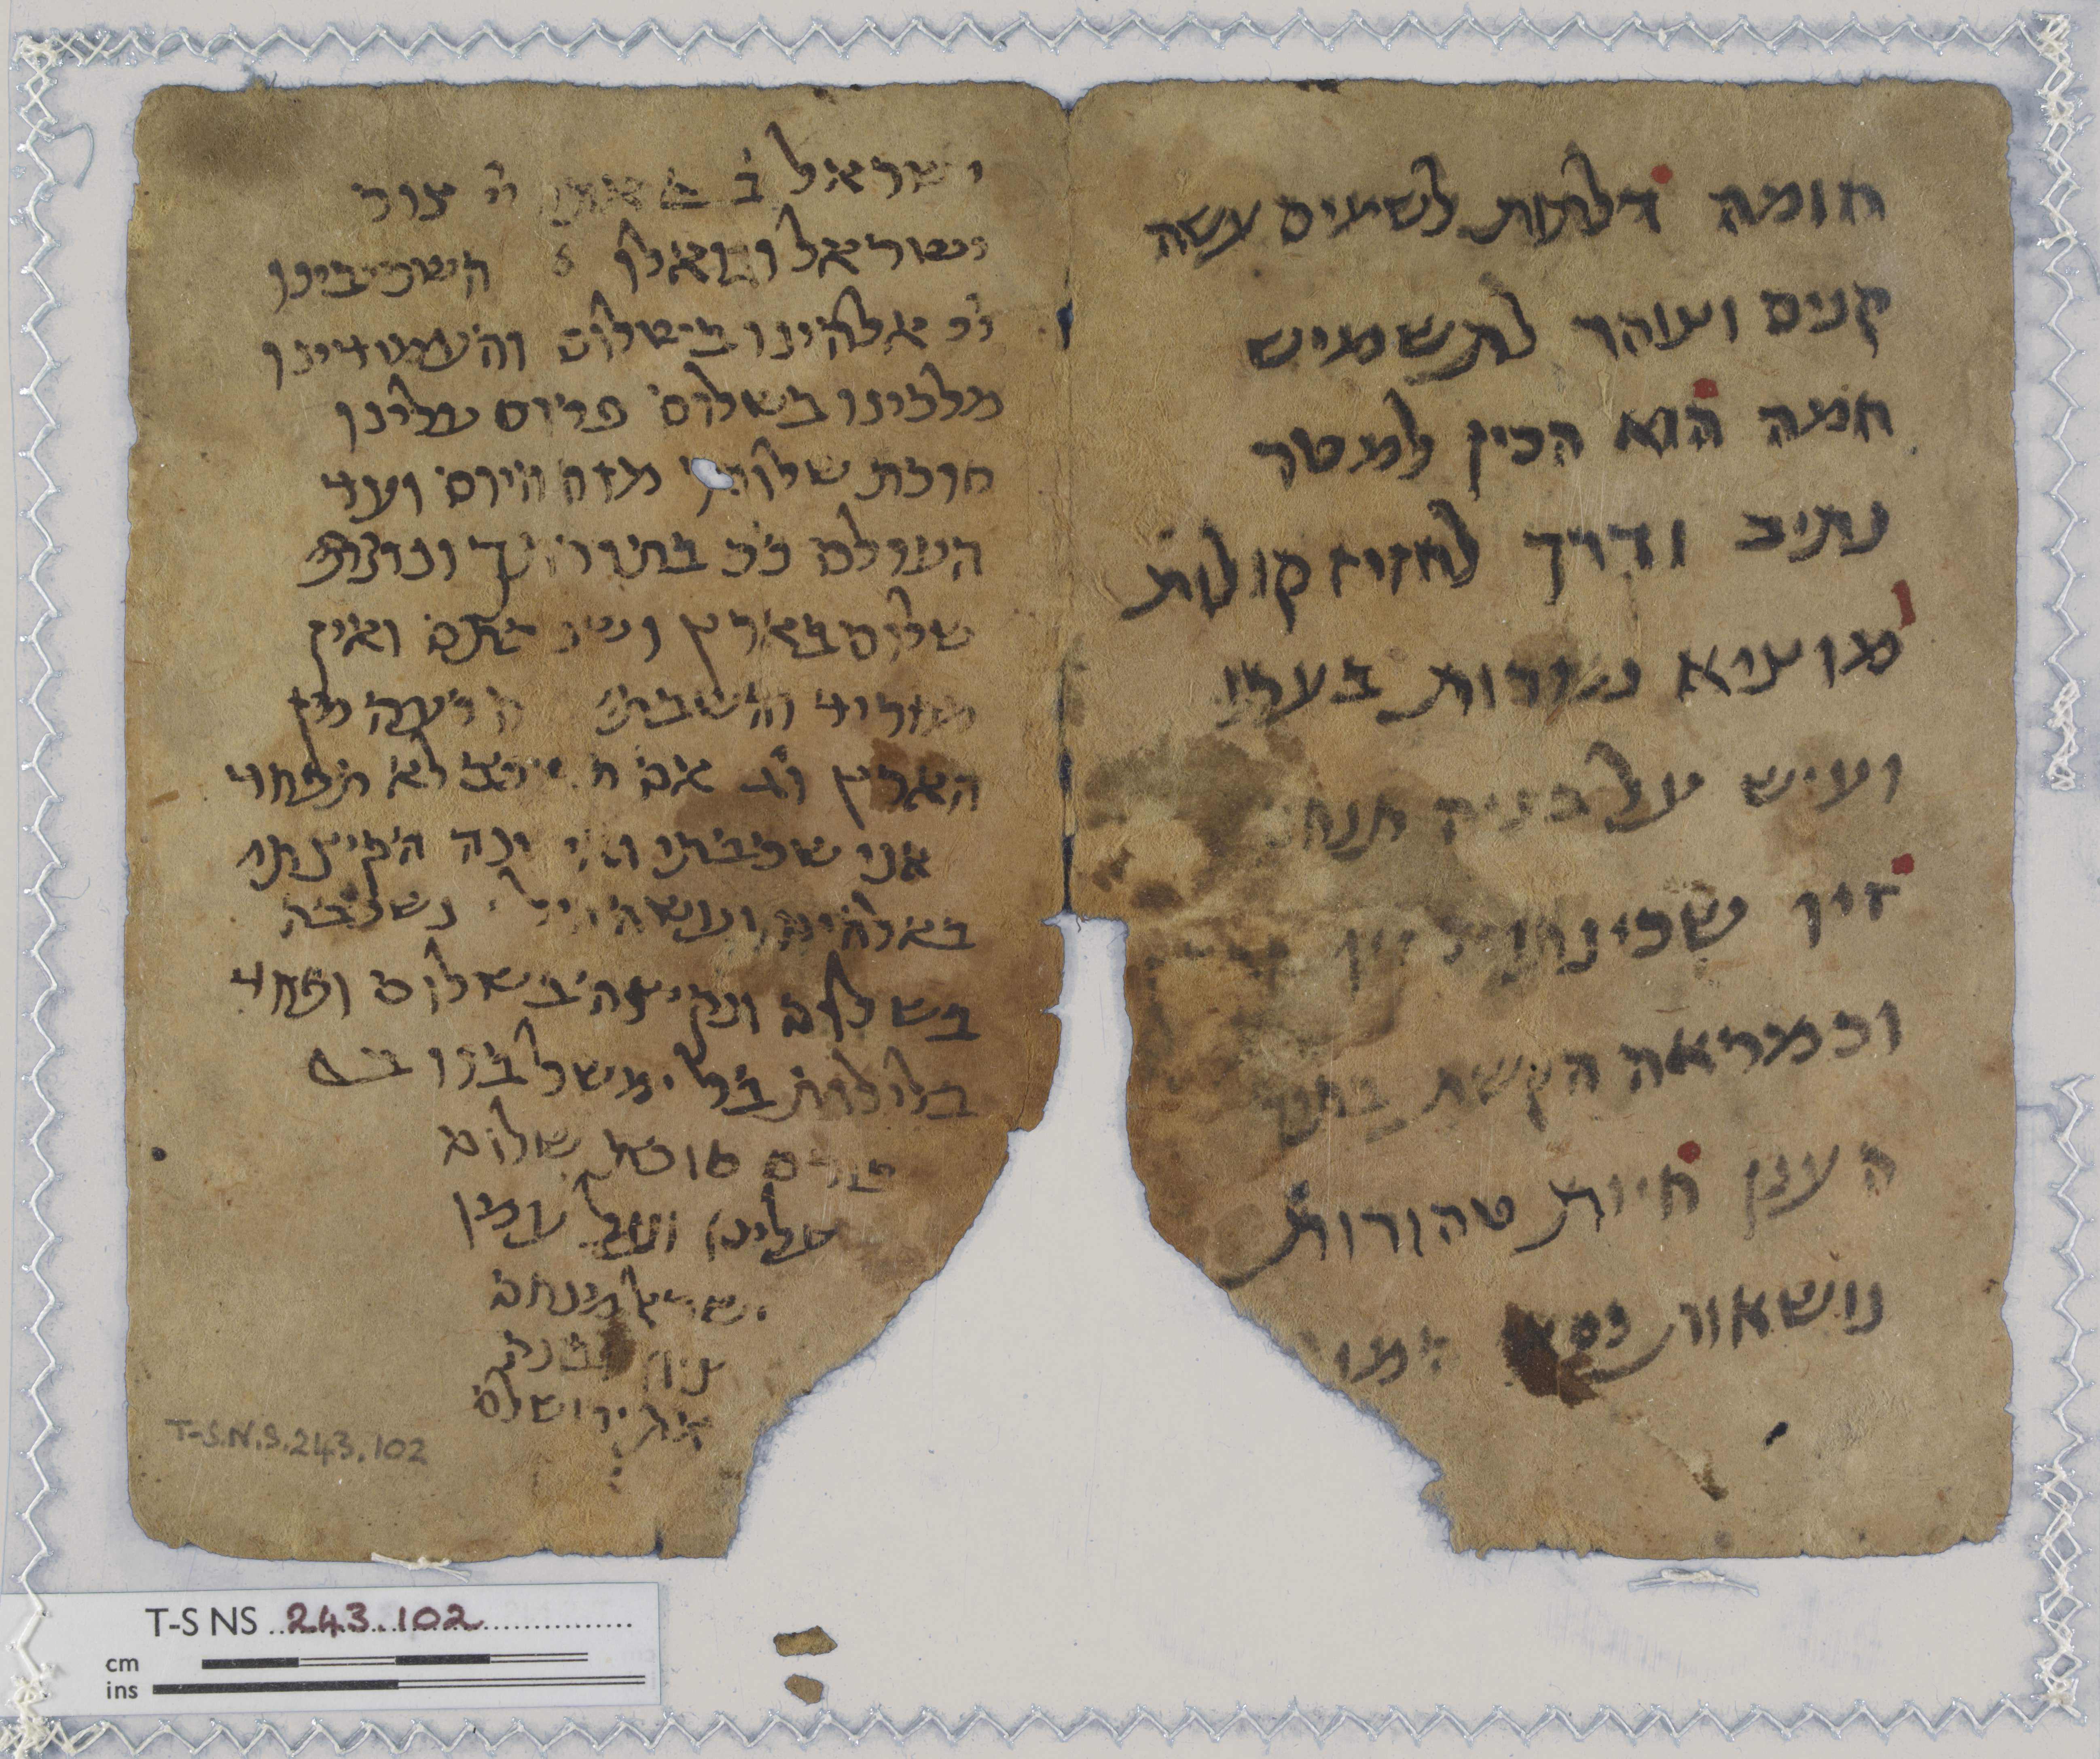 חומה דלתות לשמים עשה
קנים וזוהר לתשמיש
חמה הוא הכין למטר
נתיב ודרך לחזיז קולות
מוציא בעתו
ועיש על בניה תנחם
זיו שכינתו
וכמראה הקשת בתוך
הענן חיות טהורות
נושאות כסא
ישראל צור
ישראל וגואלו השכיבינו
ייי אלהינו בשלום והעמידינו
מלכינו בשלום פרוס עלינו
סוכת שלומך מזה היום ועד
העולם ככ בתורתך ונתתי
שלום בארץ ושכבתם ואין
מחריד והשבתי חיה רעה מן
הארץ וג אם תשכב לא תפחד
אני שכבתי ואישנה הקיצתי
באלהים נשכבה
בשלום ונקיצה בשלום ופחד
בלילות בל ימשל בנו
פורס סוכת שלום
עלינו ועל עמו
ישראל מנחם
ציון ובונה
את ירושלם
T-S.N.S.243.102
T-S NS 243.102
cm
ins